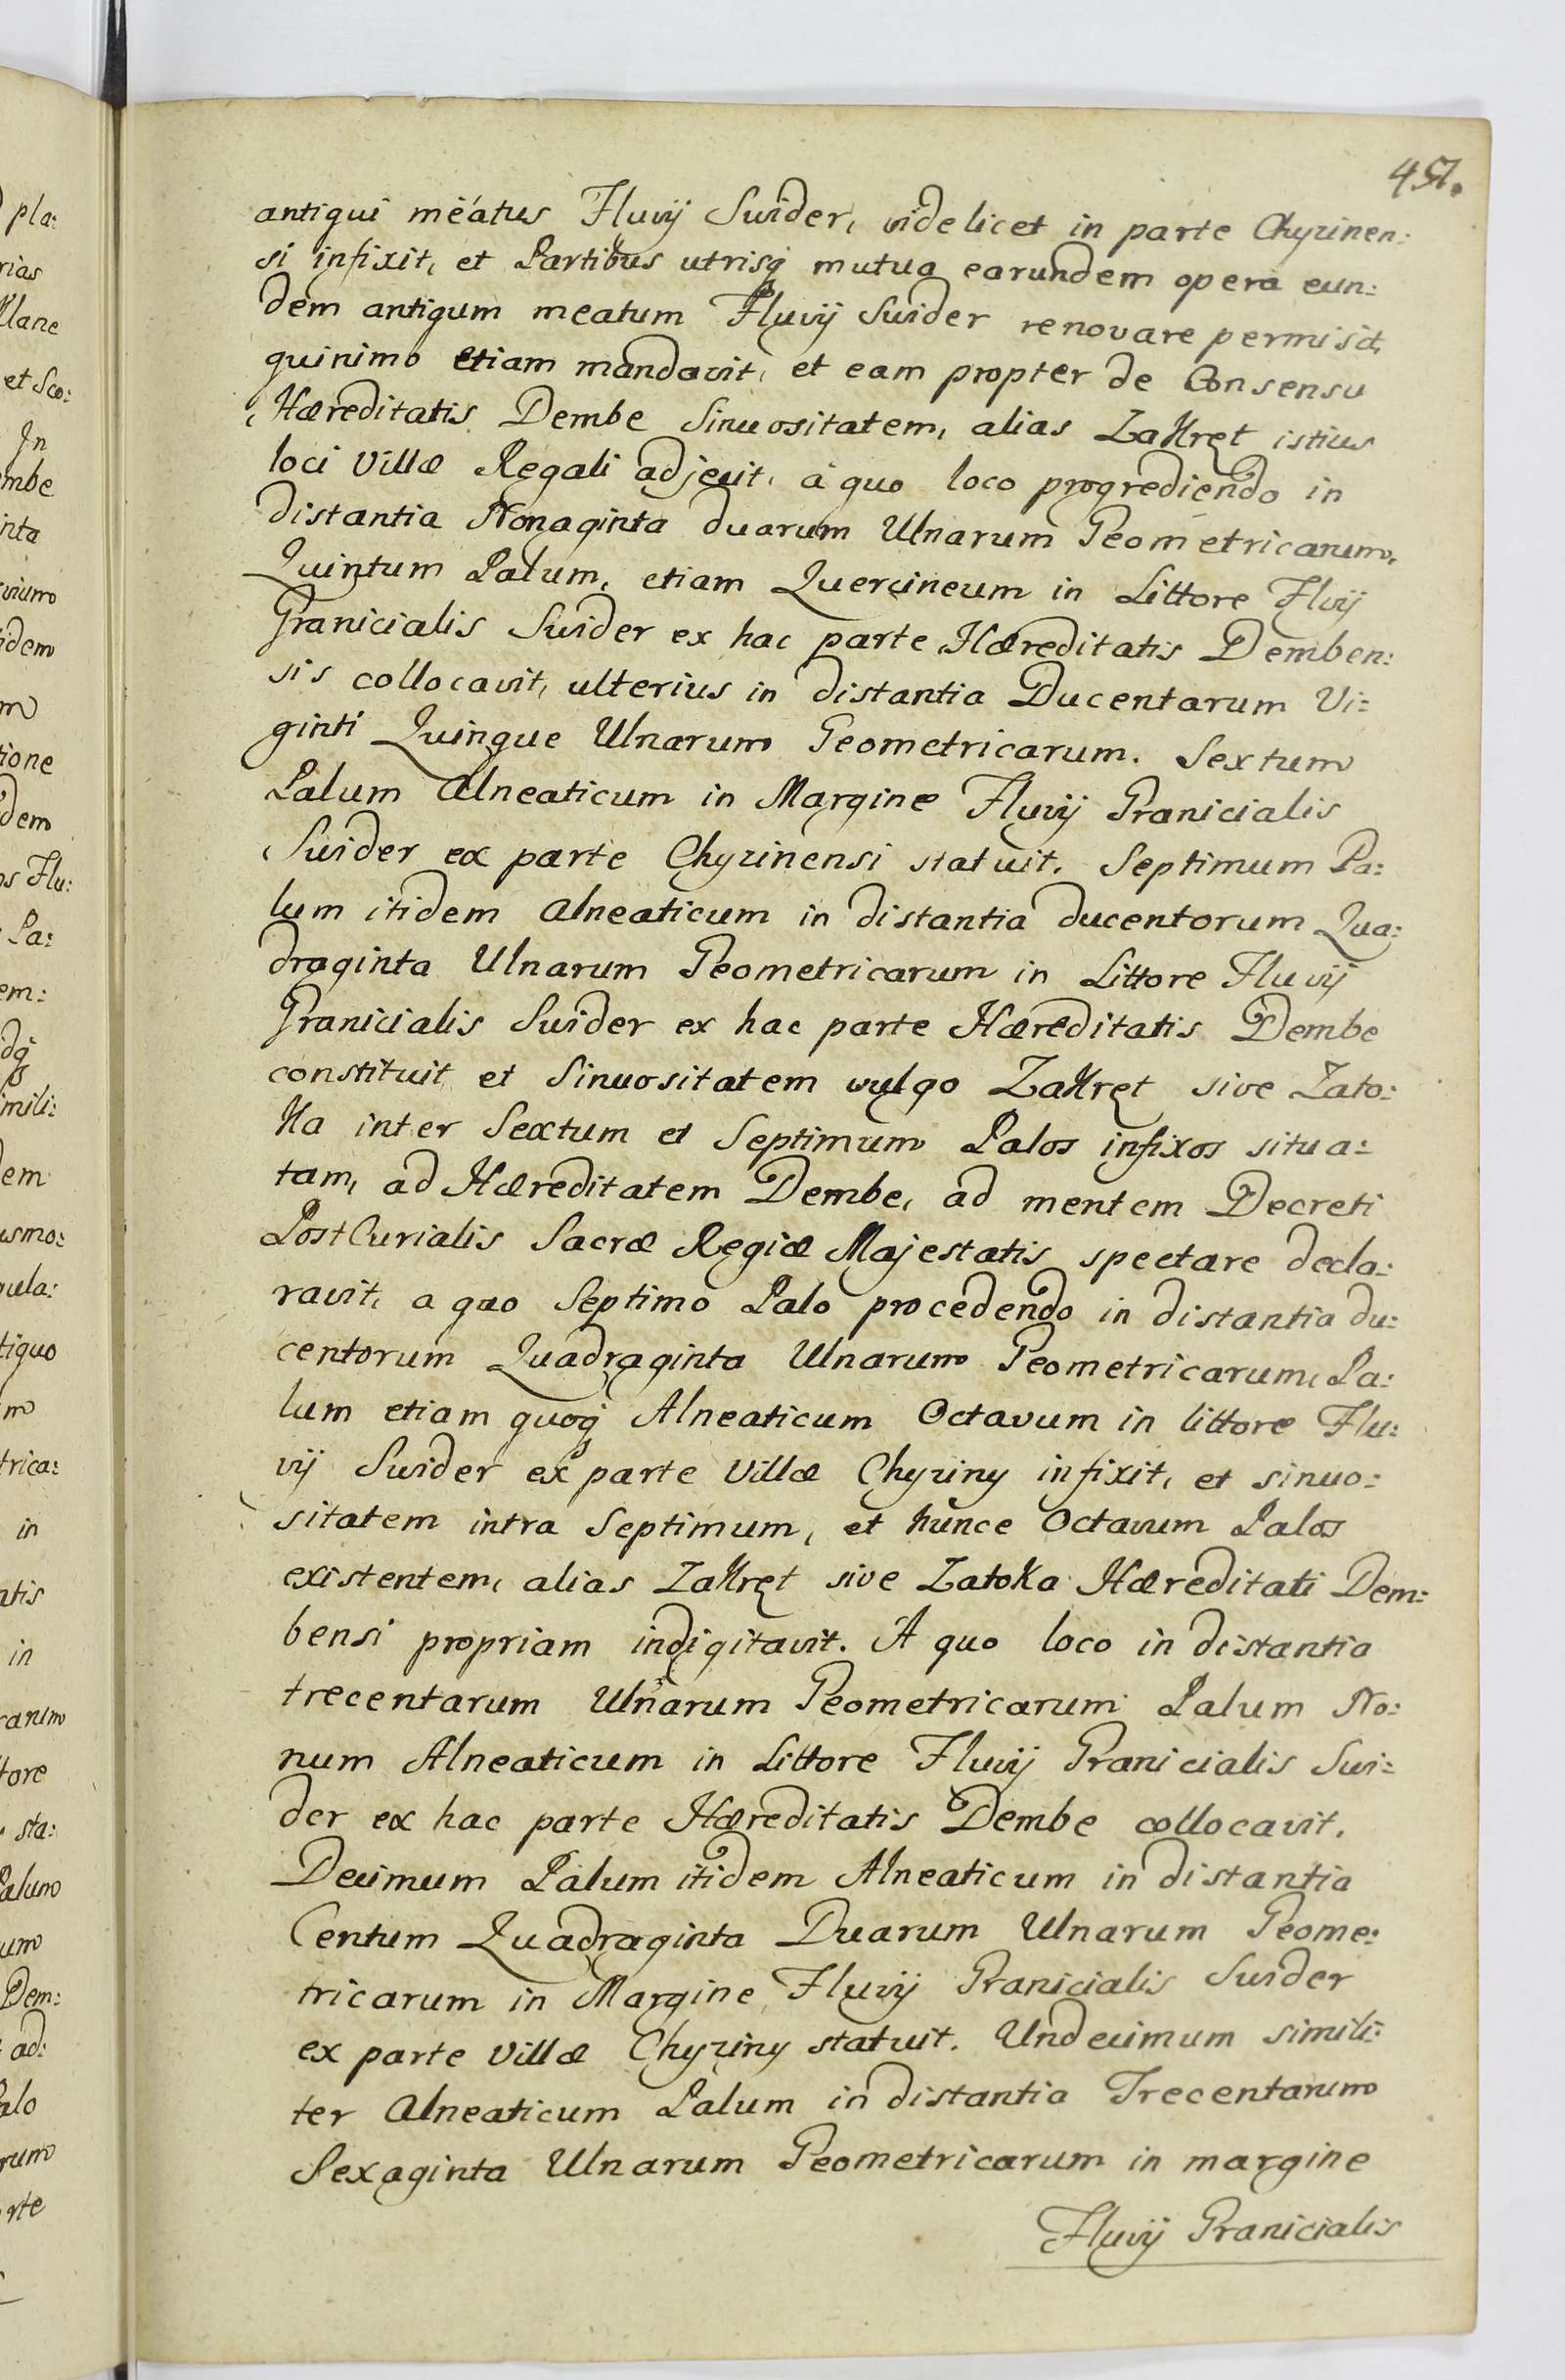 451.
antiqui meatus Fluvij Swider, videlicet in parte Chyzinen:
si infixit, et Partibus utrisq mutua earundem opera eun:
dem antiqum meatum Fluvij Swider renovare permisit,
quinimo etiam mandavit, et eam propter de Consensu
Hæreditatis Dembe Sinuositatem, alias Zakręt istius
loci Villæ Regali adjecit, a quo loco progrediendo in
distantia Nonaginta duarum Ulnarum Geometricarum,
Quintum Palum, etiam Quercineum in Littore Flvij
Granicialis Swider ex hac parte Hæreditatis Demben:
sis collocavit, ulterius in distantia Ducentarum Vi:
ginti Quinque Ulnarum Geometricarum. Sextum
Palum Alneaticum in Margine Fluvij Granicialis
Swider ex parte Chyzinensi statuit. Septimum Pa:
lum itidem Alneaticum in distantia ducentorum Qua:
draginta Ulnarum Geometricarum in Littore Fluvij
Granicialis Swider ex hac parte Hæreditatis Dembe
constituit et Sinuositatem vulgo Zakręt sive Zato:
ka inter Sextum et Septimum Palos infixos situa:
tam, ad Hæreditatem Dembe, ad mentem Decreti
PostCurialis Sacræ Regiæ Majestatis spectare decla:
ravit, a quo Septimo Palo procedendo in distantia du:
centorum Quadraginta Ulnarum Geometricarum, Pa:
lum etiam quoq Alneaticum Octavum in littore Flu:
vij Swider ex parte Villæ Chyziny infixit, et sinuo:
sitatem intra Septimum, et hunce Octavum Palos
existentem, alias Zakręt sive Zatoka Hæreditati Dem:
bensi propriam indigitavit. A quo loco in distantia
trecentarum Ulnarum Geometricarum Palum No:
num Alneaticum in Littore Fluvij Granicialis Swi:
der ex hac parte Hæreditatis Dembe collocavit.
Decimum Palum itidem Alneaticum in distantia
Centum Quadraginta Duarum Ulnarum Geome:
tricarum in Margine Fluvij Granicialis Swider
ex parte Villæ Chyziny statuit. Undecimum simili:
ter Alneaticum Palum in distantia Trecentarum
Sexaginta Ulnarum Geometricarum in margine
Fluvij Granicialis